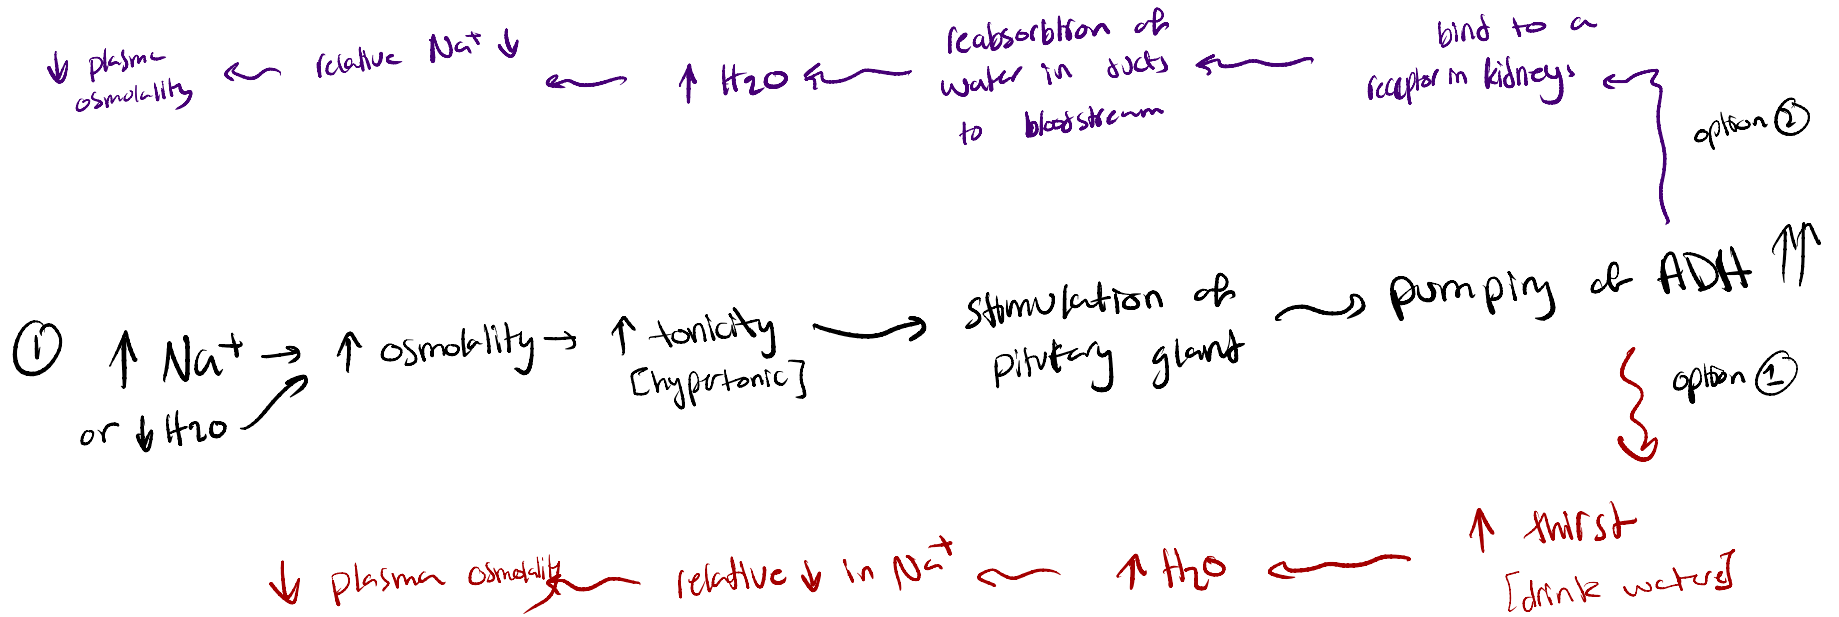 ↓ plasma osmolality ← relative Na⁺ ↓ ← ↑ H2O ← reabsorbtion of water in ducts to bloodstream ← bind to a receptor in kidneys
option ②
① ↑ Na⁺ → ↑ osmolality → ↑ tonicity [hypertonic] → stimulation of pitutary gland → pumping of ADH ↑↑
or ↓ H2O
option ①
↑ thirst
[drink water]
↓ plasma osmolality ← relative ↓ in Na⁺ ← ↑ H2O ←